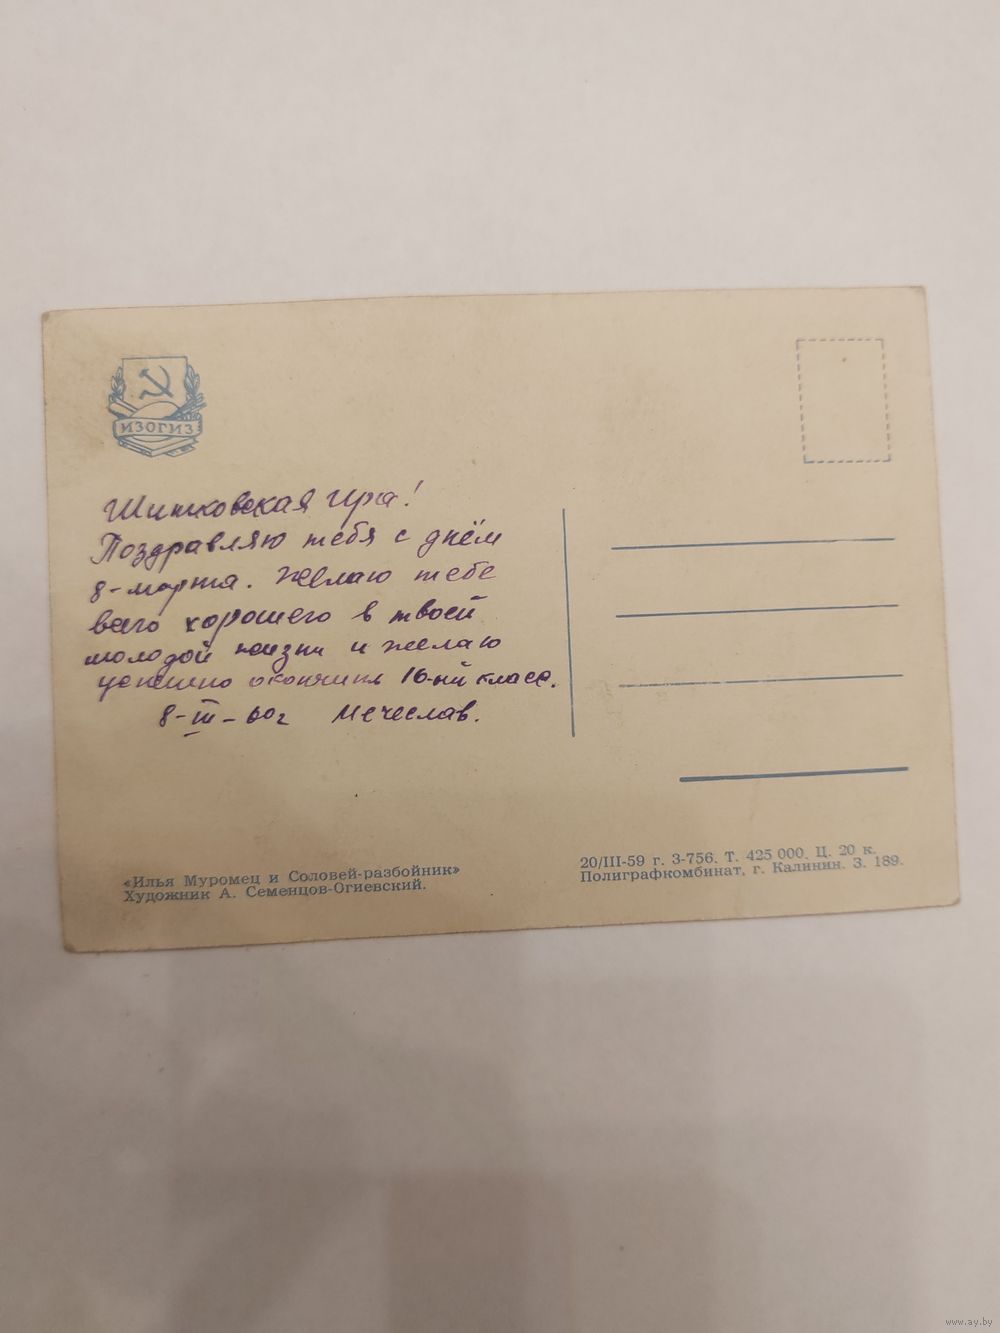 ИЗОГИЗ
Шишковская Ира!
Поздравляю тебя с днём
8-марта. Желаю тебе
всего хорошего в твоей
молодой жизни и желаю
успешно окончить 10-ый класс.
8-III-60г Мечеслав.
«Илья Муромец и Соловей-разбойник»
Художник А. Семенцов-Огиевский.
20/III-59 г. З-756. Т. 425 000. Ц. 20 к.
Полиграфкомбинат, г. Калинин. З. 189.
www.ay.by